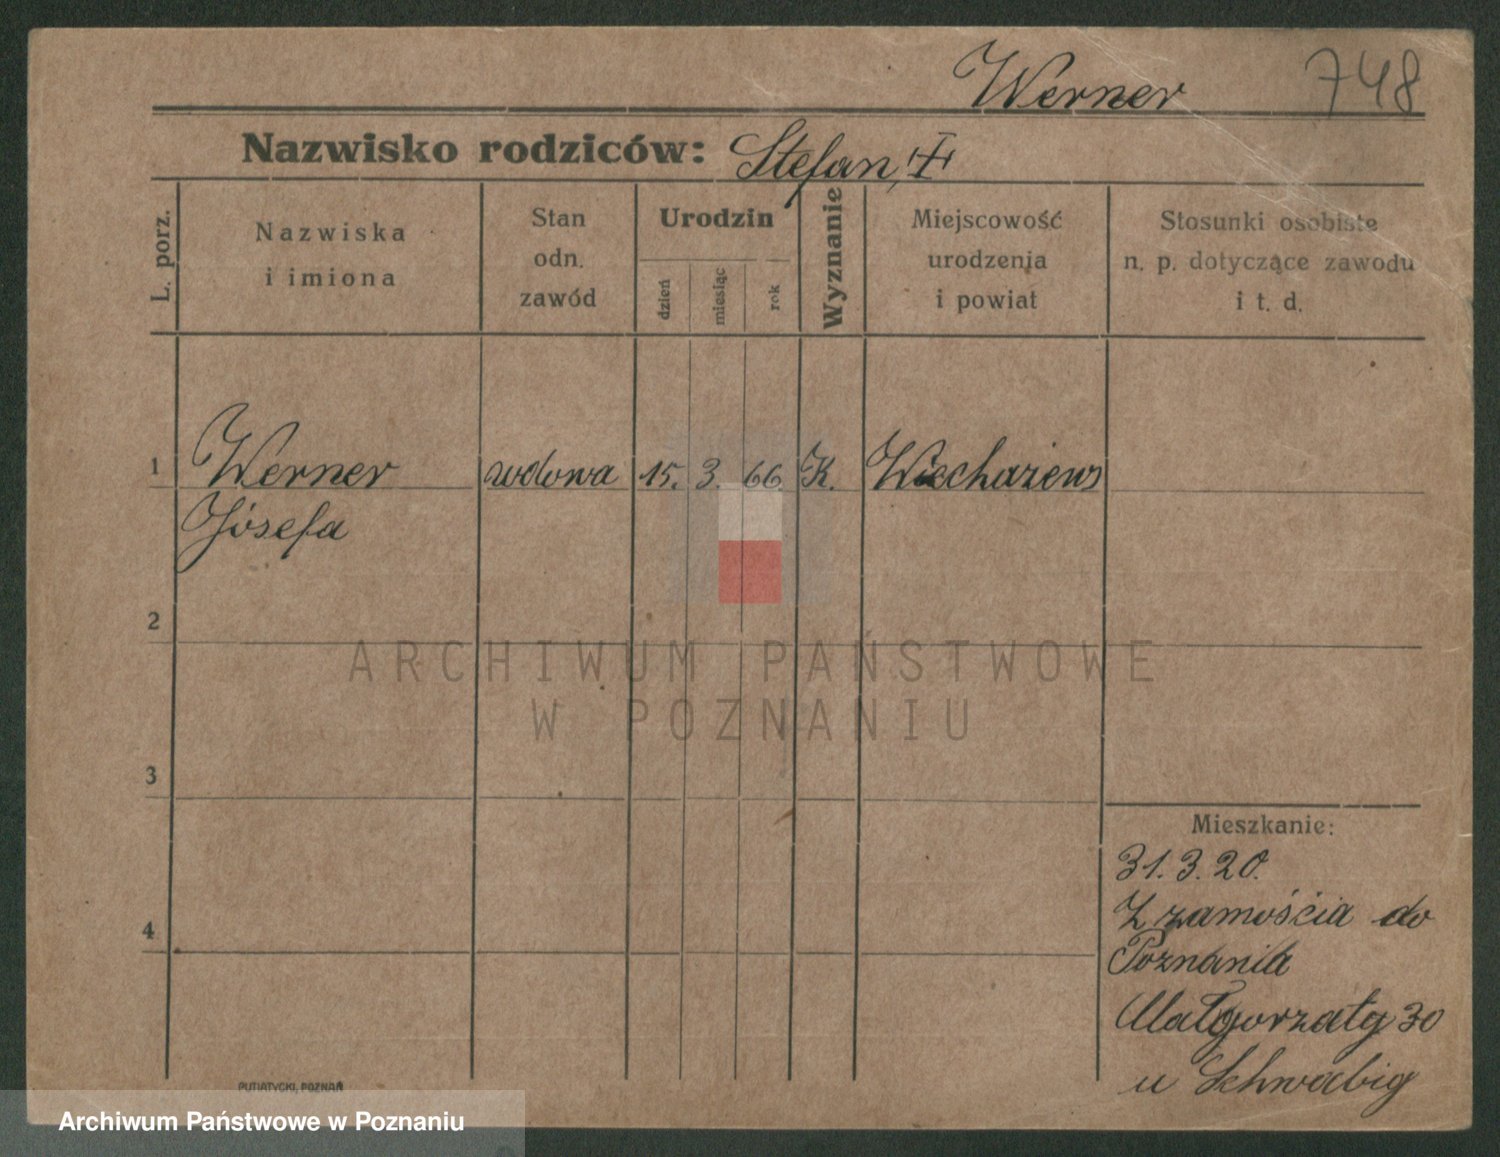 Werner 748
Nazwisko rodziców: Stefan, ‡
L. porz.
Nazwiska
i imiona
Stan
odn.
zawód
Urodzin
dzień
miesiąc
rok
Wyznanie
Miejscowość
urodzenia
i powiat
Stosunki osobiste
n. p. dotyczące zawodu
i t. d.
1 Werner wdowa 15. 3. 66 K. Wiechazews
Józefa
2
3
4
ARCHIWUM PAŃSTWOWE
W POZNANIU
Mieszkanie:
31. 3. 20.
Z zamościa do
Poznania
Małgorzaty 30
u Schwabig
PUTIATYCKI, POZNAŃ
Archiwum Państwowe w Poznaniu